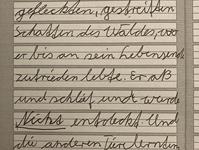 gefleckten, gestreiften
Schatten des Waldes, wo
er bis an sein Lebensende
zufrieden lebte. Er aß
und schlief und wurde
Nichts entdeckt. Und
die anderen Tiere lernten